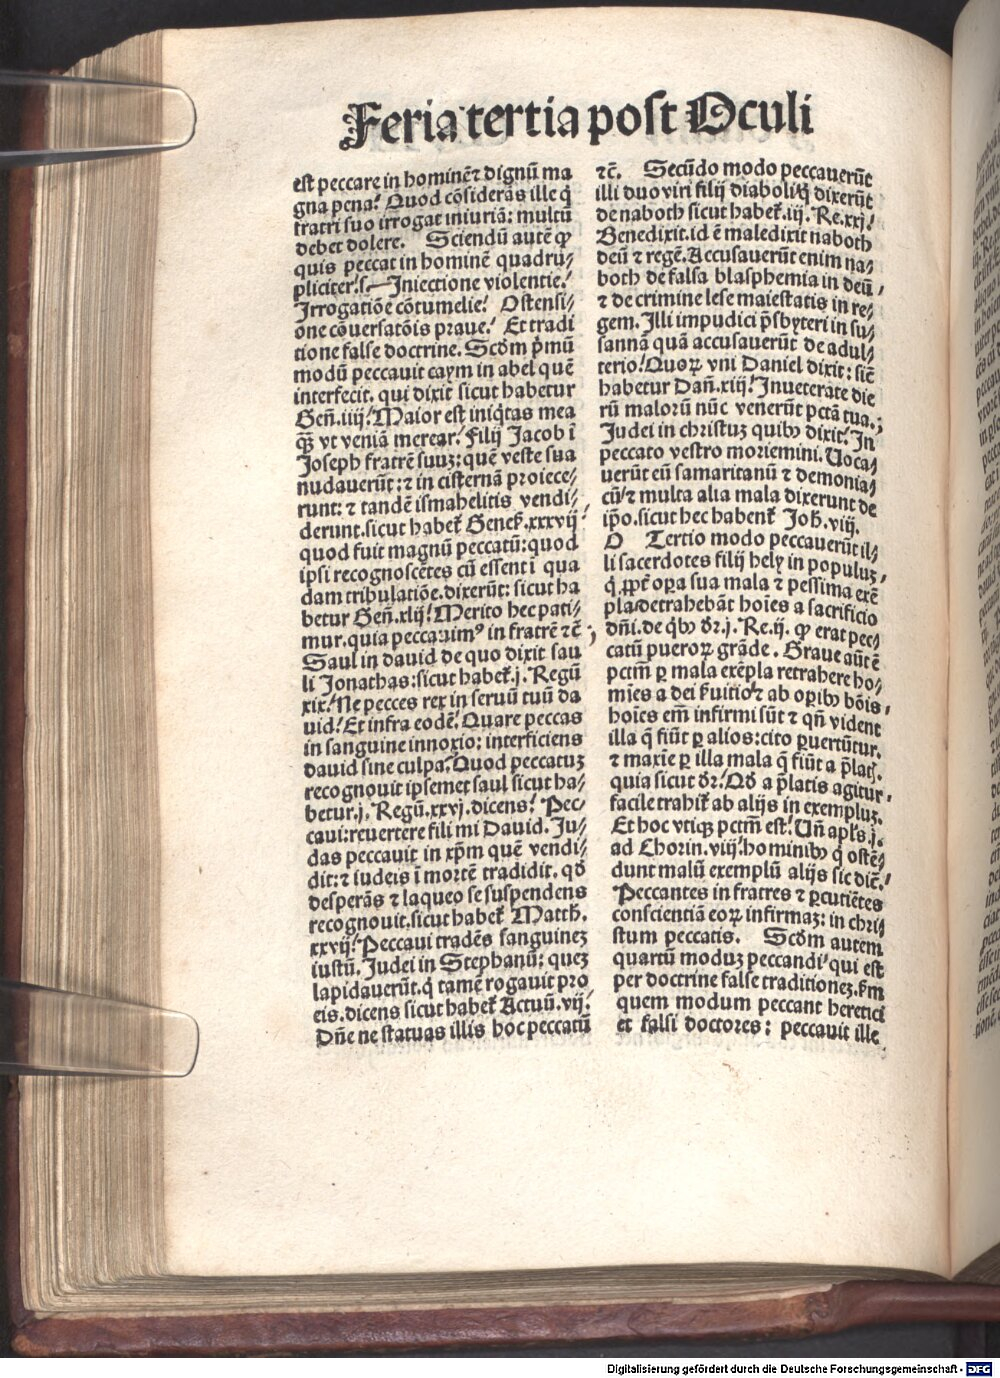 Feria tertia post Oculi
est peccare in hominē ⁊ dignū ma
gna pena? Quod cōsiderās ille q̄
fratri suo irrogat iniuriā: multū
debet dolere. Sciendū autē ꝙ
quis peccat in hominē quadru⸗
pliciter/s. Iniectione violentie/
Irrogatiōe cōtumelie/ Ostensi⸗
one cōuersatōis praue/ Et tradi
tione false doctrine. Scḋm pˈmū
modū peccauit caym in abel quē
interfecit. qui dixit sicut habetur
Geñ.iiij/ Maior est iniq̇tas mea
qȝ̄ vt veniā merear/ Filij Jacob ī
Joseph fratrē suuȝ: quē veste sua
nudauerūt: ⁊ in cisternā proiece⸗
runt: ⁊ tandē ismahelitis vendi⸗
derunt. sicut habeť Geneẜ.xxxvij/
quod fuit magnū peccatū: quod
ipsi recognoscētes cū essent ī qua
dam tribulatiōe. dixerūt: sicut ha
betur Geñ.xlij/ Merito hec pati⸗
mur. quia peccauimꝰ in fratrē ⁊c̄;
Saul in dauid de quo dixit sau
li Jonathas: sicut habeť.j. Regū
xix/ Ne pecces rex in seruū tuū da
uid/ Et infra eodē/ Quare peccas
in sanguine innoxio: interficiens
dauid sine culpa? Quod peccatuȝ
recognouit ipsemet saul sicut ha⸗
betur.j. Regū.xxvj. dicens/ Pec⸗
caui: reuertere fili mi Dauid. Ju⸗
das peccauit in xp̄m quē vendi⸗
dit: ⁊ iudeis ī mortē tradidit. qḋ
desperās ⁊ laqueo se suspendens
recognouit. sicut habeť Matth.
xxvij/ Peccaui tradēs sanguineȝ
iustū. Judei in Stephanū: queȝ
lapidauerūt. q̇ tamē rogauit pro
eis. dicens sicut habeť Actuū.vij/
Dn̄e ne statuas illis hoc peccatū
⁊c̄. Secūdo modo peccauerūt
illi duo viri filij diaboli/ q̇ dixerūt
de naboth sicut habeť.iij. Re.xxj/
Benedixit. id ē maledixit naboth
deū ⁊ regē. Accusauerūt enim na⸗
both de falsa blasphemia in deū,
⁊ de crimine lese maiestatis in re⸗
gem. Illi impudici p̄sbyteri in su⸗
sannā quā accusauerūt de adul⸗
terio/ Quoꝝ vni Daniel dixit: sic̄
habetur Dañ.xiij/ Inueterate die
rū maloꝝ nūc venerūt pctā tua.;
Judei in christuȝ quibꝫ dixit/ In
peccato vestro moriemini. Uoca⸗
uerūt eū samaritanū ⁊ demonia⸗
cū/ ⁊ multa alia mala dixerunt de
ip̄o. sicut hec habent᷑ Joh̄.viij.
O Tertio modo peccauerūt il⸗
li sacerdotes filij hely in populuȝ,
q̇ ꝓpt᷑ oꝑa sua mala ⁊ pessima exē
pla detrahebāt hoīes a sacrificio
dn̄i. de q̇bꝫ ḋr.j. Re.ij. ꝙ erat pec⸗
catū pueroꝝ grāde. Graue aūt ē
pctm̄ ꝑ mala exēpla retrahere ho⸗
mīes a dei ẜuitio/ ⁊ ab oꝑibꝫ bōis,
hoīes em̄ infirmi sūt ⁊ qn̄ vident
illa q̄ fiūt ꝑ alios: cito ꝑuertūtur.
⁊ maxīe ꝑ illa mala q̄ fiūt a p̄latꝭ.
quia sicut ḋr/ Qḋ a p̄latis agitur,
facile trahiť ab alijs in exempluȝ.
Et hoc vtiqȝ pctm̄ est/ Un̄ apl̄s.j.
ad Chorin.viij/ hominibꝫ q̇ ostē⸗
dunt malū exemplū alijs sic dic̄/
Peccantes in fratres ⁊ ꝑcutiētes
conscientiā eoꝝ infirmaȝ: in chri⸗
stum peccatis. Scḋm autem
quartū moduȝ peccandi/ qui est
per doctrine false traditioneȝ. ẜm
quem modum peccant heretici
et falsi doctores: peccauit ille
Digitalisierung gefördert durch die Deutsche Forschungsgemeinschaft - DFG